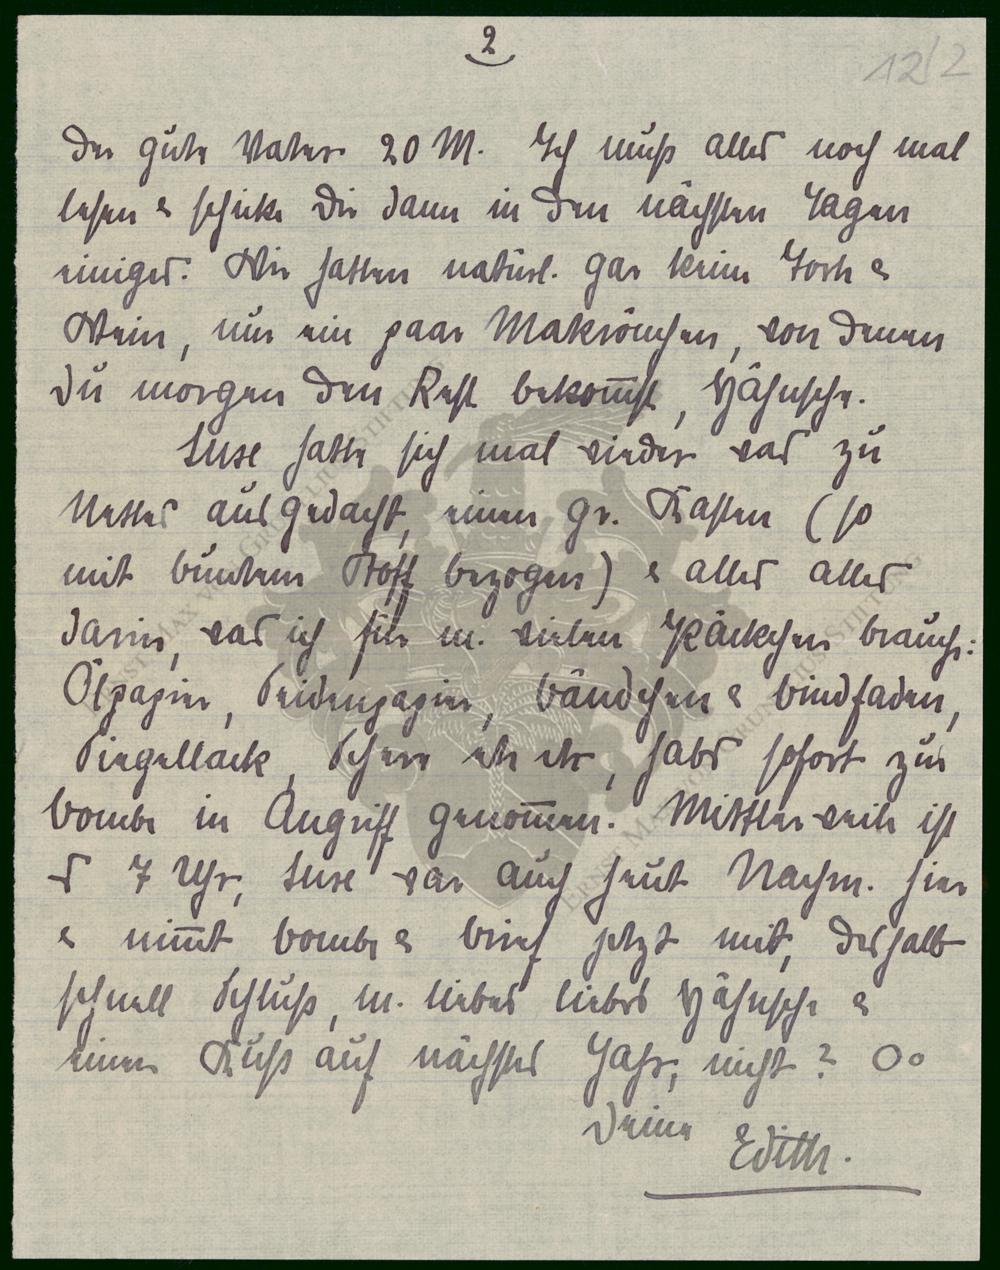 2
12/2
der gute Vater 20 M. Ich muß alles noch mal
lesen & schicke Dir dann in den nächsten Tagen
einiges. Wir hatten natürl. gar keine Torte &
Wein, nur ein paar Makrönchen, von denen
Du morgen den Rest bekom̅st, Hähnsche.
Suse hatte sich mal wieder was zu
Nettes ausgedacht, einen gr. Kasten (so
mit buntem Stoff bezogen) & alles alles
darin, was ich für m. vielen Päckchen brauche:
Ölpapier, Seidenpapier, Bändchen & Bindfaden,
Siegellack, Schere etc etc, habs sofort zur
Bombe in Angriff genom̅en. Mittlerweile ist
s 7 Uhr, Suse war auch heut Nachm. hier
& nim̅t Bombe & Brief jetzt mit, deshalb
schnell Schluß, m. liebes liebes Hähnsche &
einen Kuß auf nächstes Jahr, nicht? Oo
Deine Edith.
ERNST MAX VON GRUNELIUS-STIFTUNG
ERNST MAX VON GRUNELIUS-STIFTUNG